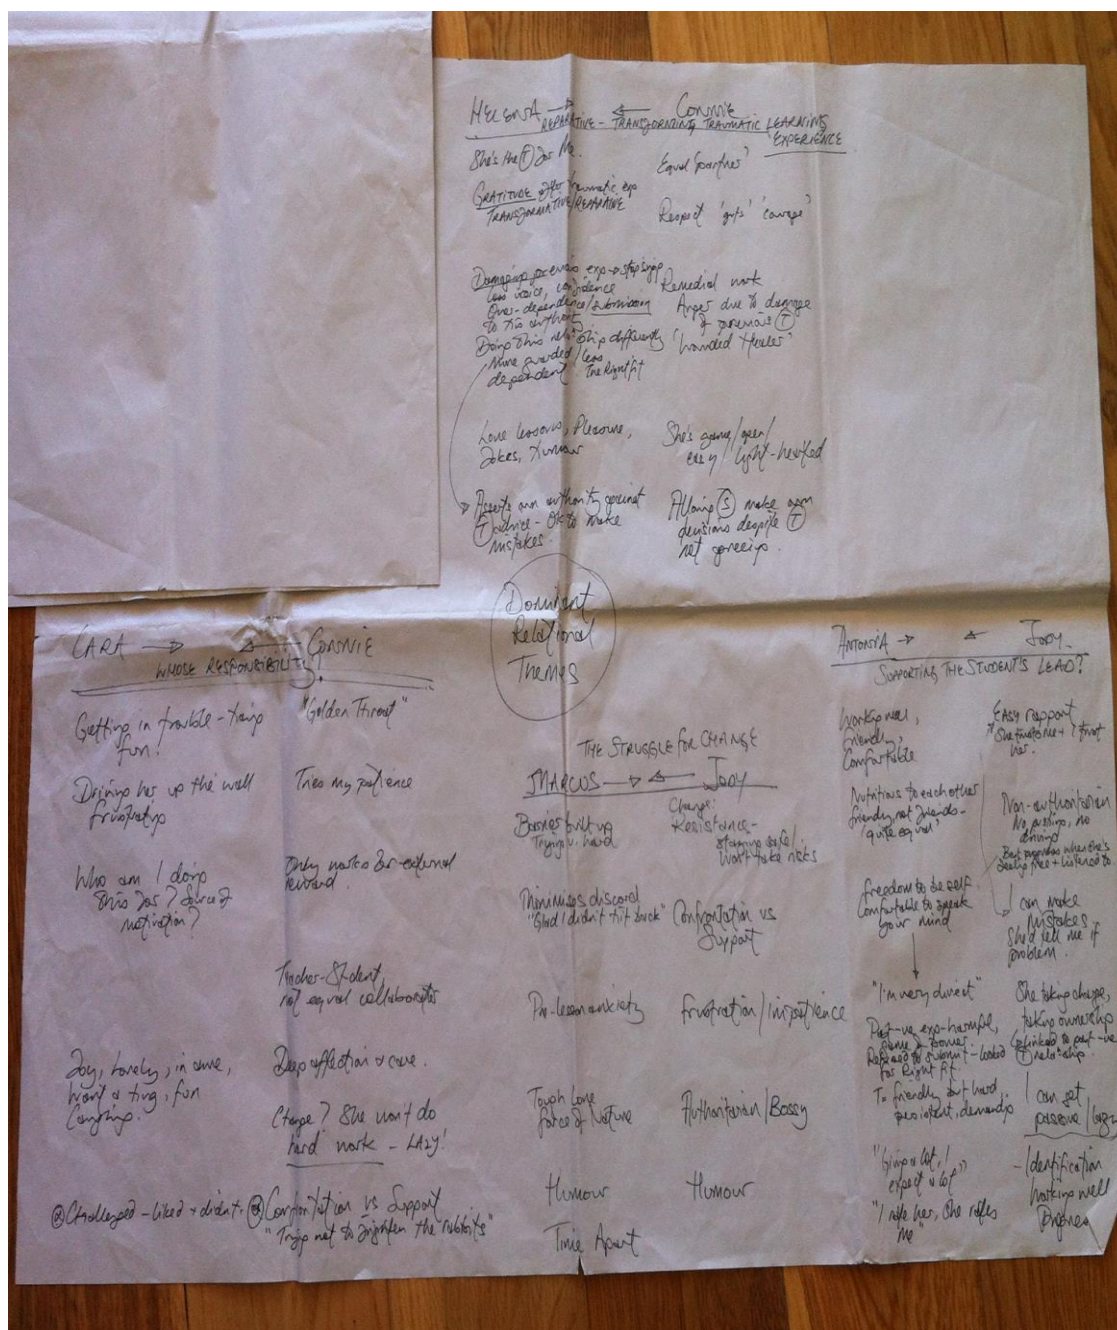 HELENA → ← CONNIE
REPARATIVE - TRANSFORMING TRAUMATIC LEARNING EXPERIENCE
She's the Ⓣ for Me.
GRATITUDE after traumatic exp
TRANSFORMATIVE/REPARATIVE
Damaging previous exp → stop singing
Loss voice, confidence
Over-dependence/submission
to T's authority
Doing this relationship differently
More guarded/less
dependent The Right fit
Love lessons, Pleasure,
Jokes, Humour
Asserts own authority against
Ⓣ advice - OK to make
mistakes.
Equal 'partner'
Respect 'guts' 'courage'
Remedial work
Anger due to damage
of previous Ⓣ
'Wounded Healer'
She's game/open/
easy/light-hearted
Allowing Ⓢ make own
decisions despite Ⓣ
not agreeing.
Dominant
Relational
Themes
CARA → ← CONNIE
WHOSE RESPONSIBILITY?
Getting in trouble -
fun!
Driving her up the wall
frustrating
Who am I doing
this for? Source of
motivation?
Joy, lovely, in awe,
fun
@ Challenged - liked + didn't.
"Golden Throat"
Tries my patience
Only works for external
reward.
Teacher-Student,
not equal collaborators
Deep affection & care.
Change? She won't do
hard work - LAZY!
@ Confrontation vs Support
"Trying not to frighten the rabbits"
THE STRUGGLE FOR CHANGE
MARCUS → ← JODY
Barrier built up
Trying v. hard
Minimises discord
"Glad I didn't hit back"
Pre-lesson anxiety
Tough Love
Force of Nature
Humour
Time Apart
Change:
Resistance-
staying safe/
Won't take risks
Confrontation vs
Support
Frustration/impatience
Authoritarian/Bossy
Humour
ANTONIA → ← JODY
SUPPORTING THE STUDENT'S LEAD?
Works well,
friendly,
Comfortable
Nutritious to each other
friendly, not friends-
'quite equal'
Freedom to be self.
Comfortable to speak
your mind
"I'm very direct"
Past -ve exp-harmful,
Refused to submit - looked
for Right fit.
T's friendly but hard
persistent, demanding
"I give a lot, I
expect a lot"
"I rate her, She rates
me"
EASY rapport
She trusts me + I trust
her.
Non-authoritarian
No pushing, no
driving
Best progress when she's
feeling free + listened to.
I can make
mistakes.
She'd tell me if
problem.
She taking charge,
taking ownership
linked to past -ve
Ⓣ relationship.
I can get
passive/lazy
- Identification
Working well
Progress